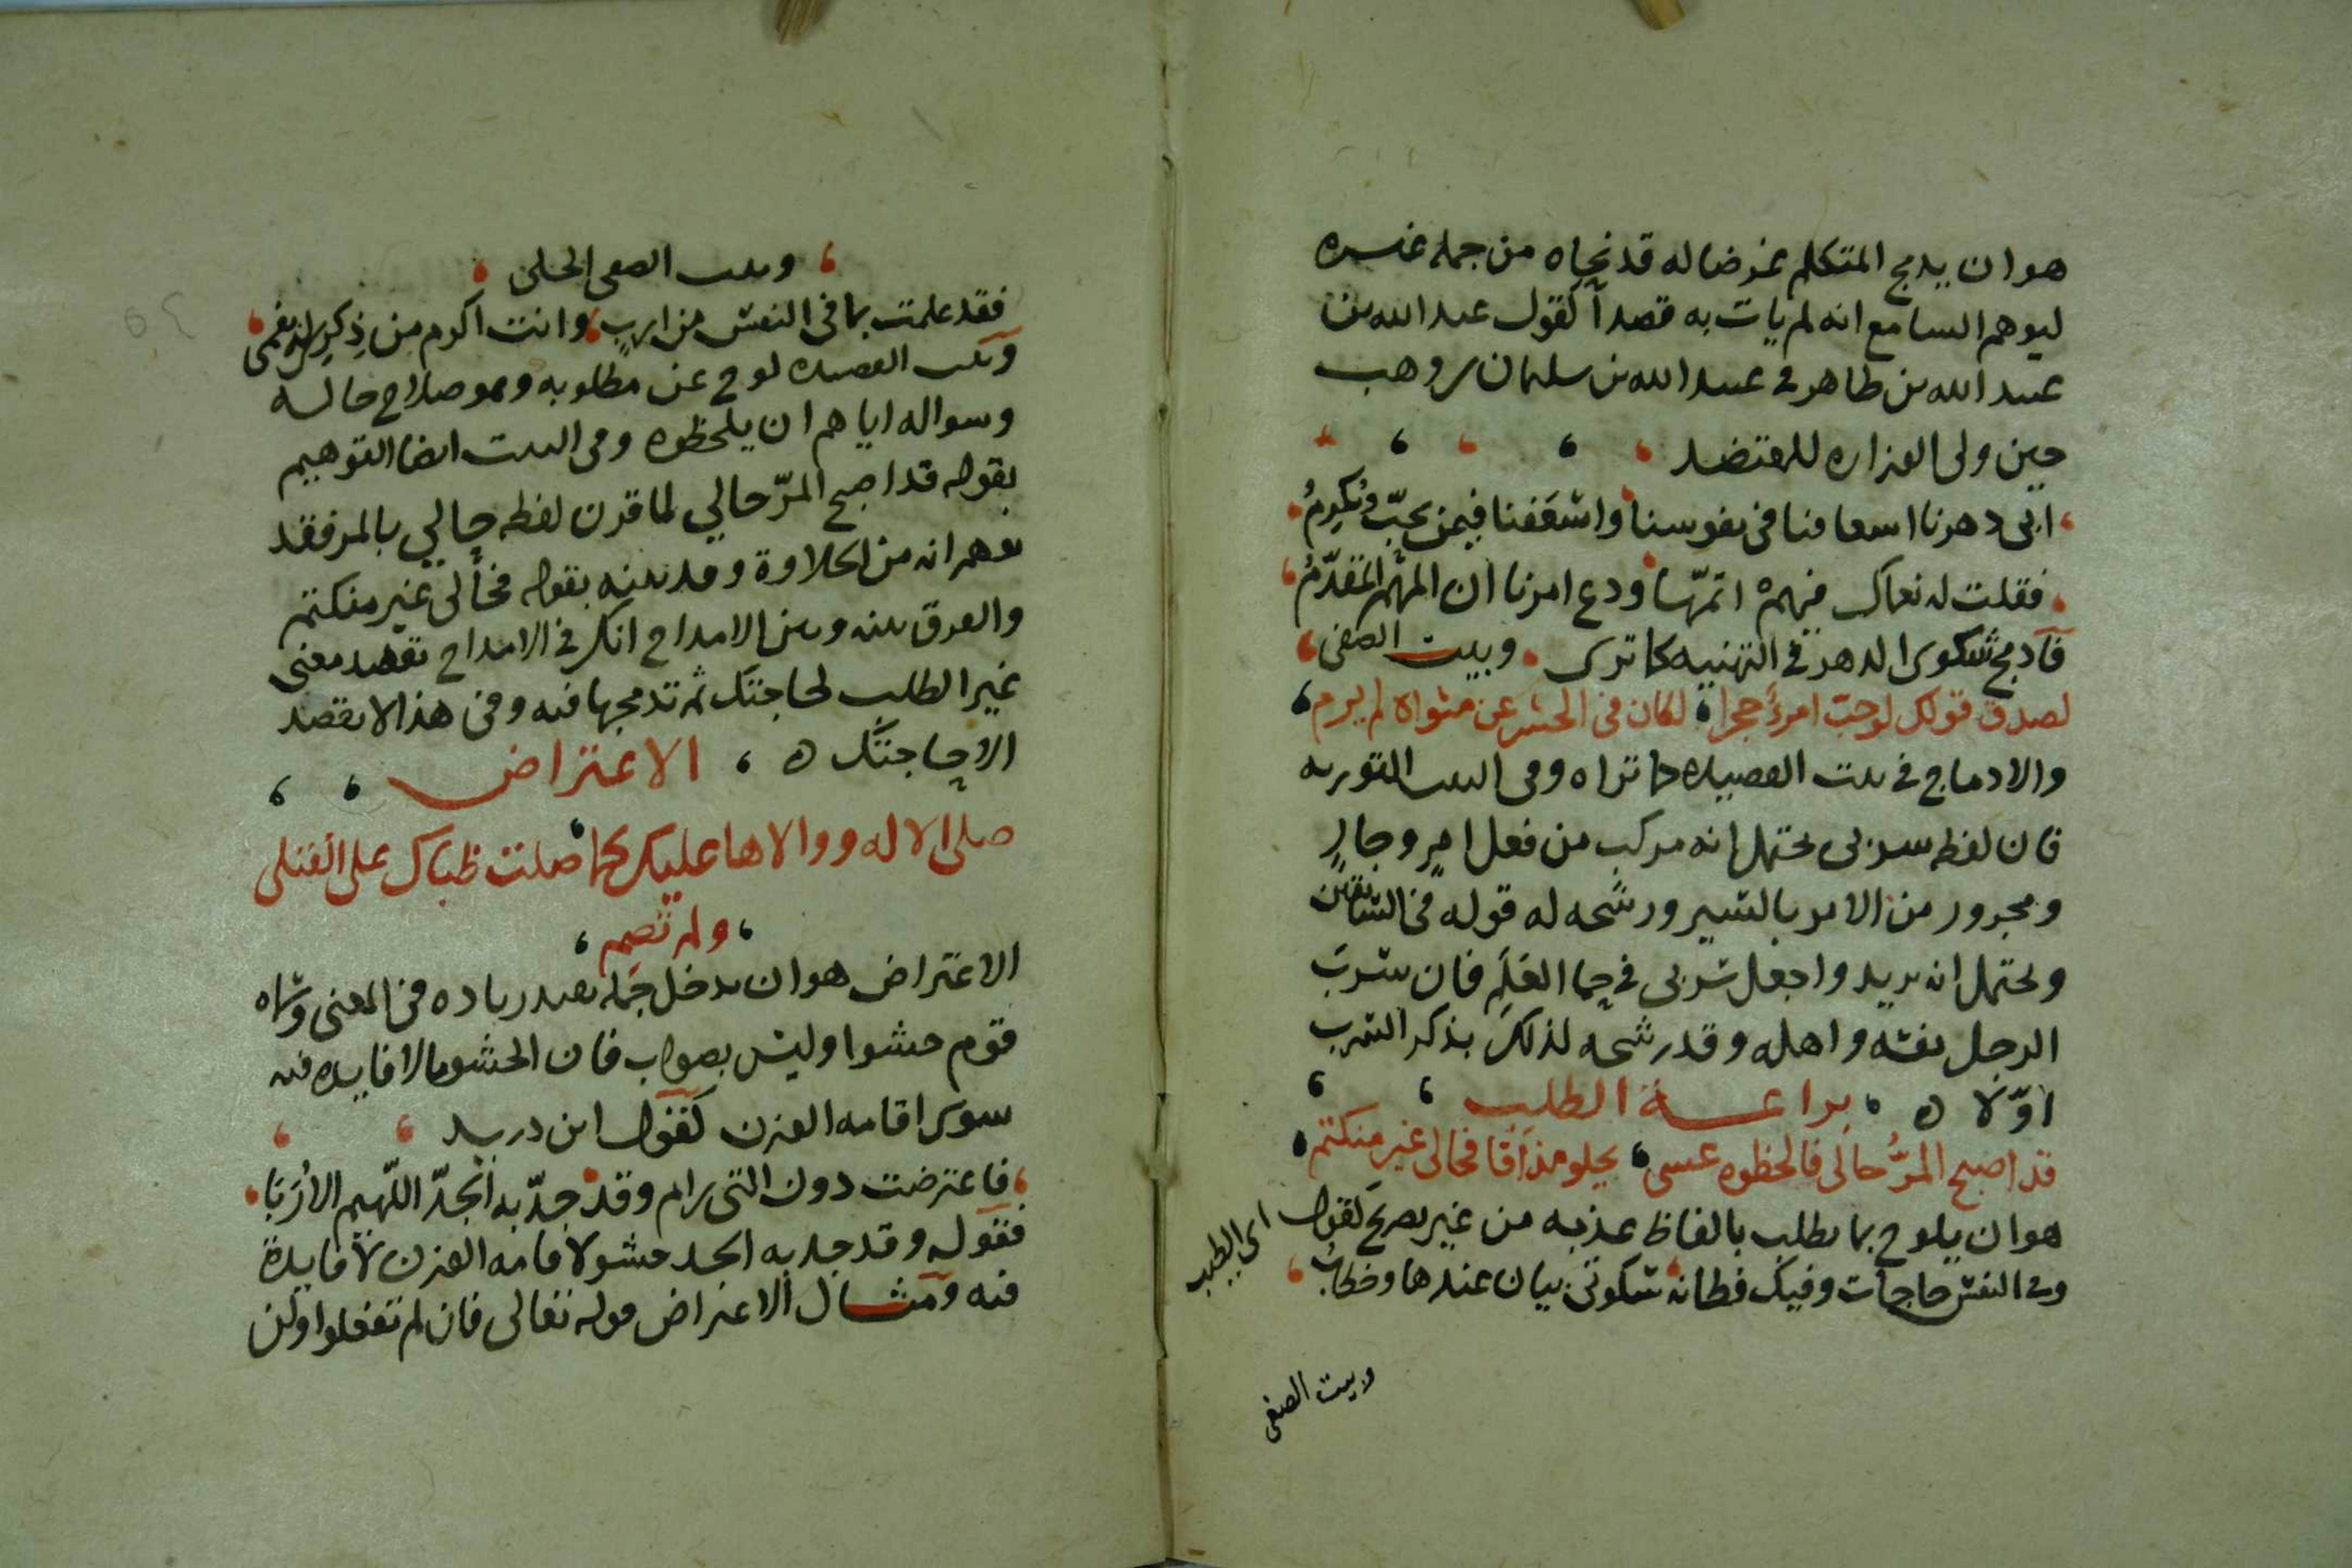 هو ان يدمج المتكلم غرضا له قد نحاه من جمله غيره
ليوهم السامع انه لم يات به قصدا كقول عبد الله بن
عبيد الله بن طاهر في عبيد الله بن سليمان بن وهب
حين ولى الوزاره للمعتضد
ابى دهرنا اسعافنا فى نفوسنا واسعفنا فيمن نحبّ ونكرمُ
فقلت له نعماك فيهم اتمّها ودع امرنا ان المهم المقدّمُ
فادمج شكوى الدهر في التهنيه كما ترى وبيت الصفى
لصدق قولك لو حبّ امرءٌ حجرا لكان فى الحشر عن مثواه لم يرم
والادماج في بيت القصيده كما تراه وفى البيت التوريه
فان لفظه سر بى يحتمل انه مركب من فعل امرٍ وجارٍ
ومجرور من الامر بالسير ورشحه له قوله فى السابقين
ويحتمل انه يريد واجعل سربى في حما العلم فان سرب
الرجل نفسه واهله وقد رشحه لذلك بذكر السرب
اوّلا ه براعـة الطلب
قد اصبح المرُّ حالى فالحظوه عسى يحلو مذاقا فحالى غير منكتم
هو ان يلوح بما يطلب بالفاظ عذبه من غير تصريح كقول اى الطيب
وفى النفس حاجات وفيك فطانه سكوتى بيان عندها وخطاب
وبيت الصفى
وبيت الصفى الحلى
فقد علمت بما فى النفس من اربٍ وانت اكرم من ذكرى له بفمى
وبيت القصيده لوح عن مطلوبه وهو صلاح حاله
وسواله اياهم ان يلحظوه وفى البيت ايضا التوهيم
بقوله قد اصبح المرّ حالي لما قرن لفظه حالي بالمر فقد
توهم انه من الحلاوة وقد بينه بقوله فحالى غير منكتم
والفرق بينه وبين الادماج انك في الادماج تقصد معنى
غير الطلب لحاجتك ثم تدمجها فيه وفى هذا لا تقصد
الا حاجتك ه الاعتراض
صلى الاله ووالاها عليك كما صلت ظباك على القتلى
ولم تصم
الاعتراض هو ان يدخل جمله تفيد زياده فى المعنى وسماه
قوم حشوا وليس بصواب فان الحشو ما لا فايده فيه
سوى اقامه الوزن كقول ابن دريد
فاعترضت دون التى رام وقد جدّ به الجدّ اللّهيم الاُرَبَا
فقوله وقد جد به الجد حشو لاقامه الوزن لا فايدة
فيه ومثـال الاعتراض قوله تعالى فان لم تفعلوا ولن